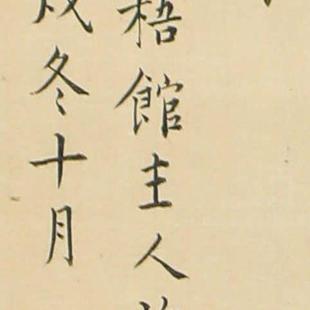 梧館主人
冬十月